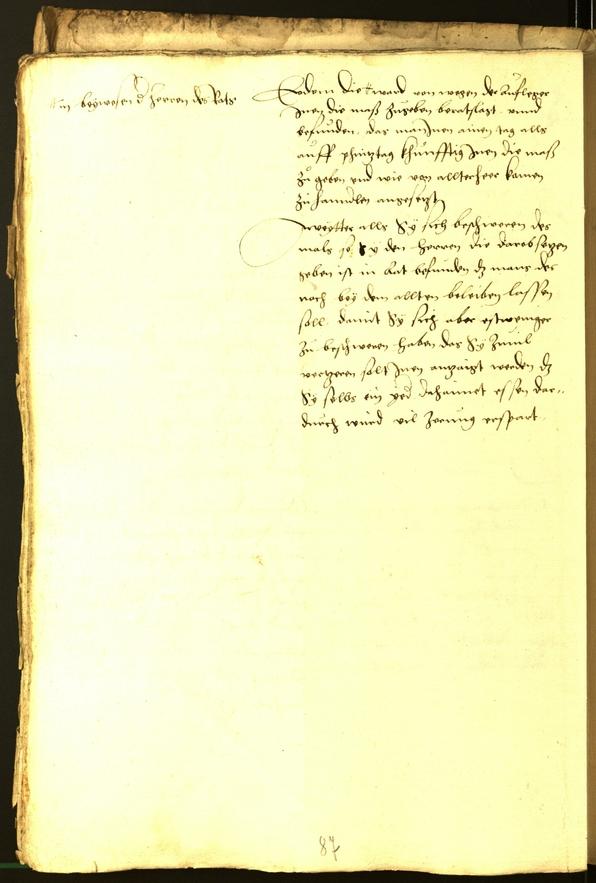 In beywesen der herren des Rats
Eodem die ward von wegen der Aufleger
Inen die maß zugeben beratslagt vnnd
befunden, das man Inen ainen tag alls
auff phintztag khunfftig Inen die maß
zu geben vnd wie von allterheer kamen
zu hanndlen angesetzt
weytter alls Sy sich beschweren des
mals so Sy den herren die darob sitzen
geben ist in Rat befunden dz mans des
noch bey dem allten beleiben lassen
soll, damit Sy sich aber estweniger
zu beschweren haben das Sy zuuil
vertzeren solt Inen anzaigt werden dz
Sy selbs ein yeder dahaimet essen dar-
durch wurd vil Zerung erspart
87